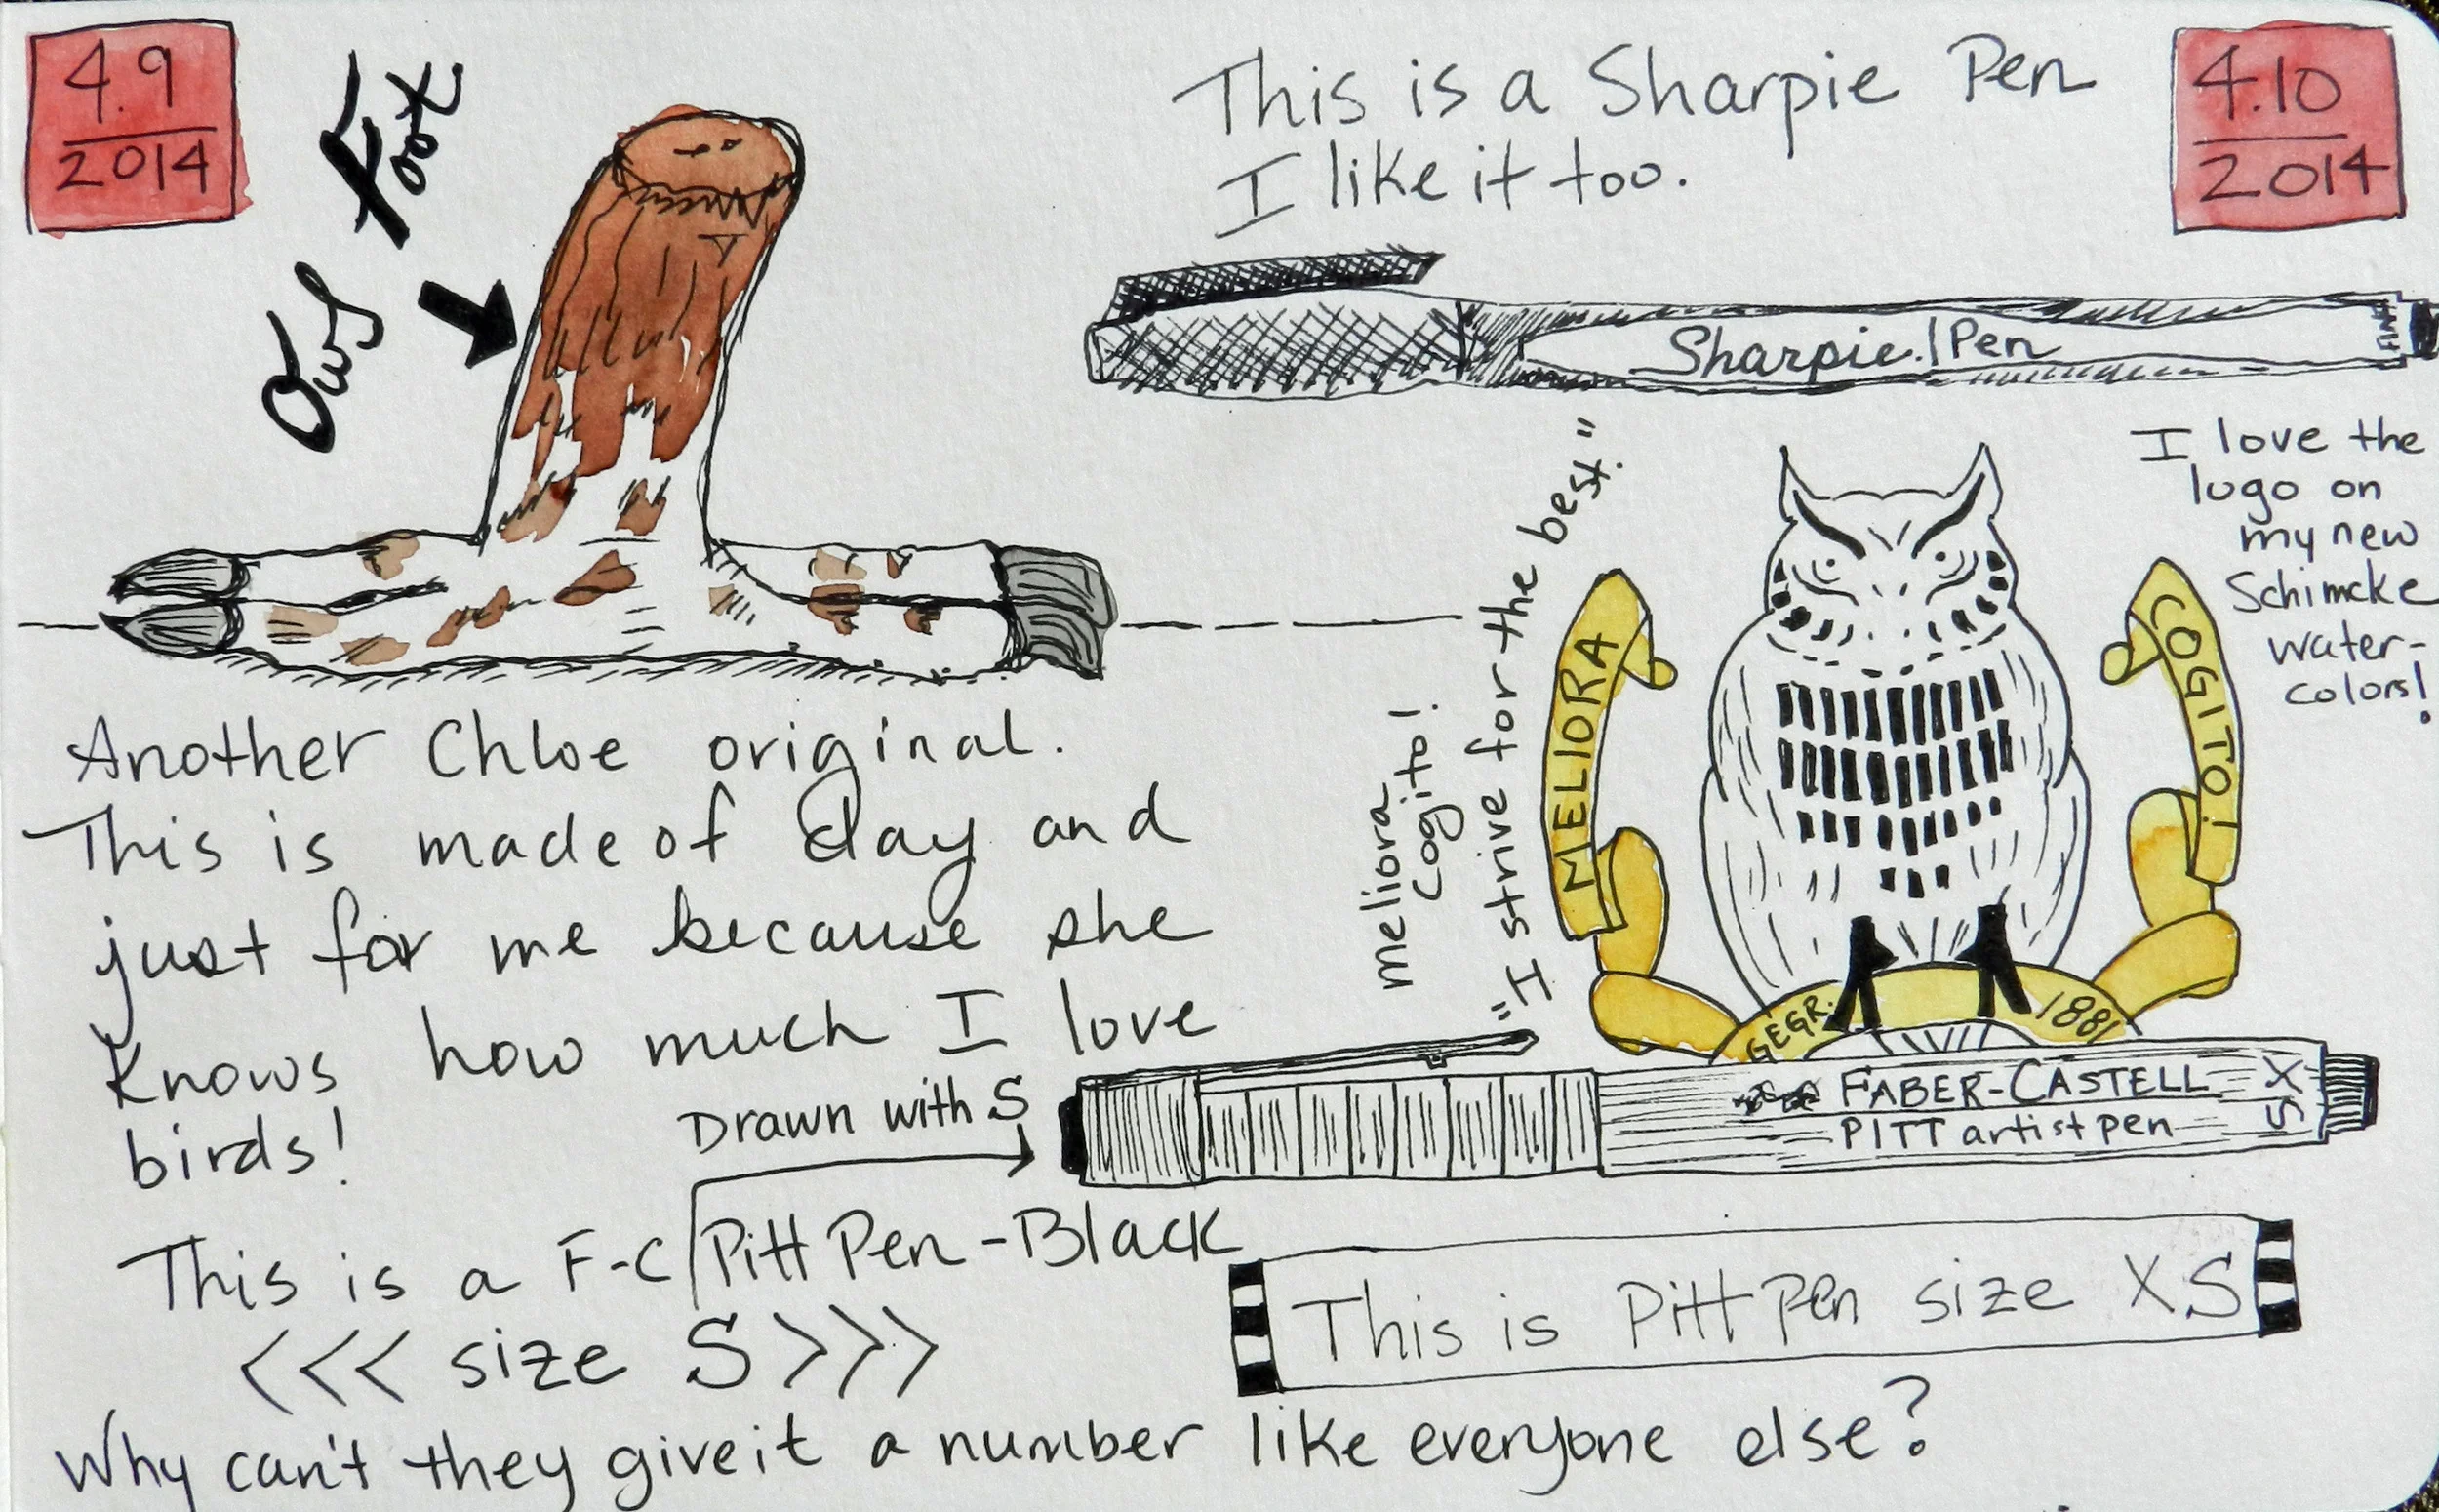 4.9
2014
Owl Foot
Another Chloe original.
This is made of clay and
just for me because she
knows how much I love
birds!
This is a F-C Pitt Pen - Black
<<< size S >>>
Drawn with S
Why can't they give it a number like everyone else?
4.10
2014
This is a Sharpie Pen
I like it too.
Sharpie. Pen
FINE
I love the
logo on
my new
Schimcke
water-
colors!
meliora
cogito!
"I strive for the best."
MELIORA
COGITO!
GEGR. 1881
FABER-CASTELL
PITT artist pen
XS
This is Pitt Pen size XS